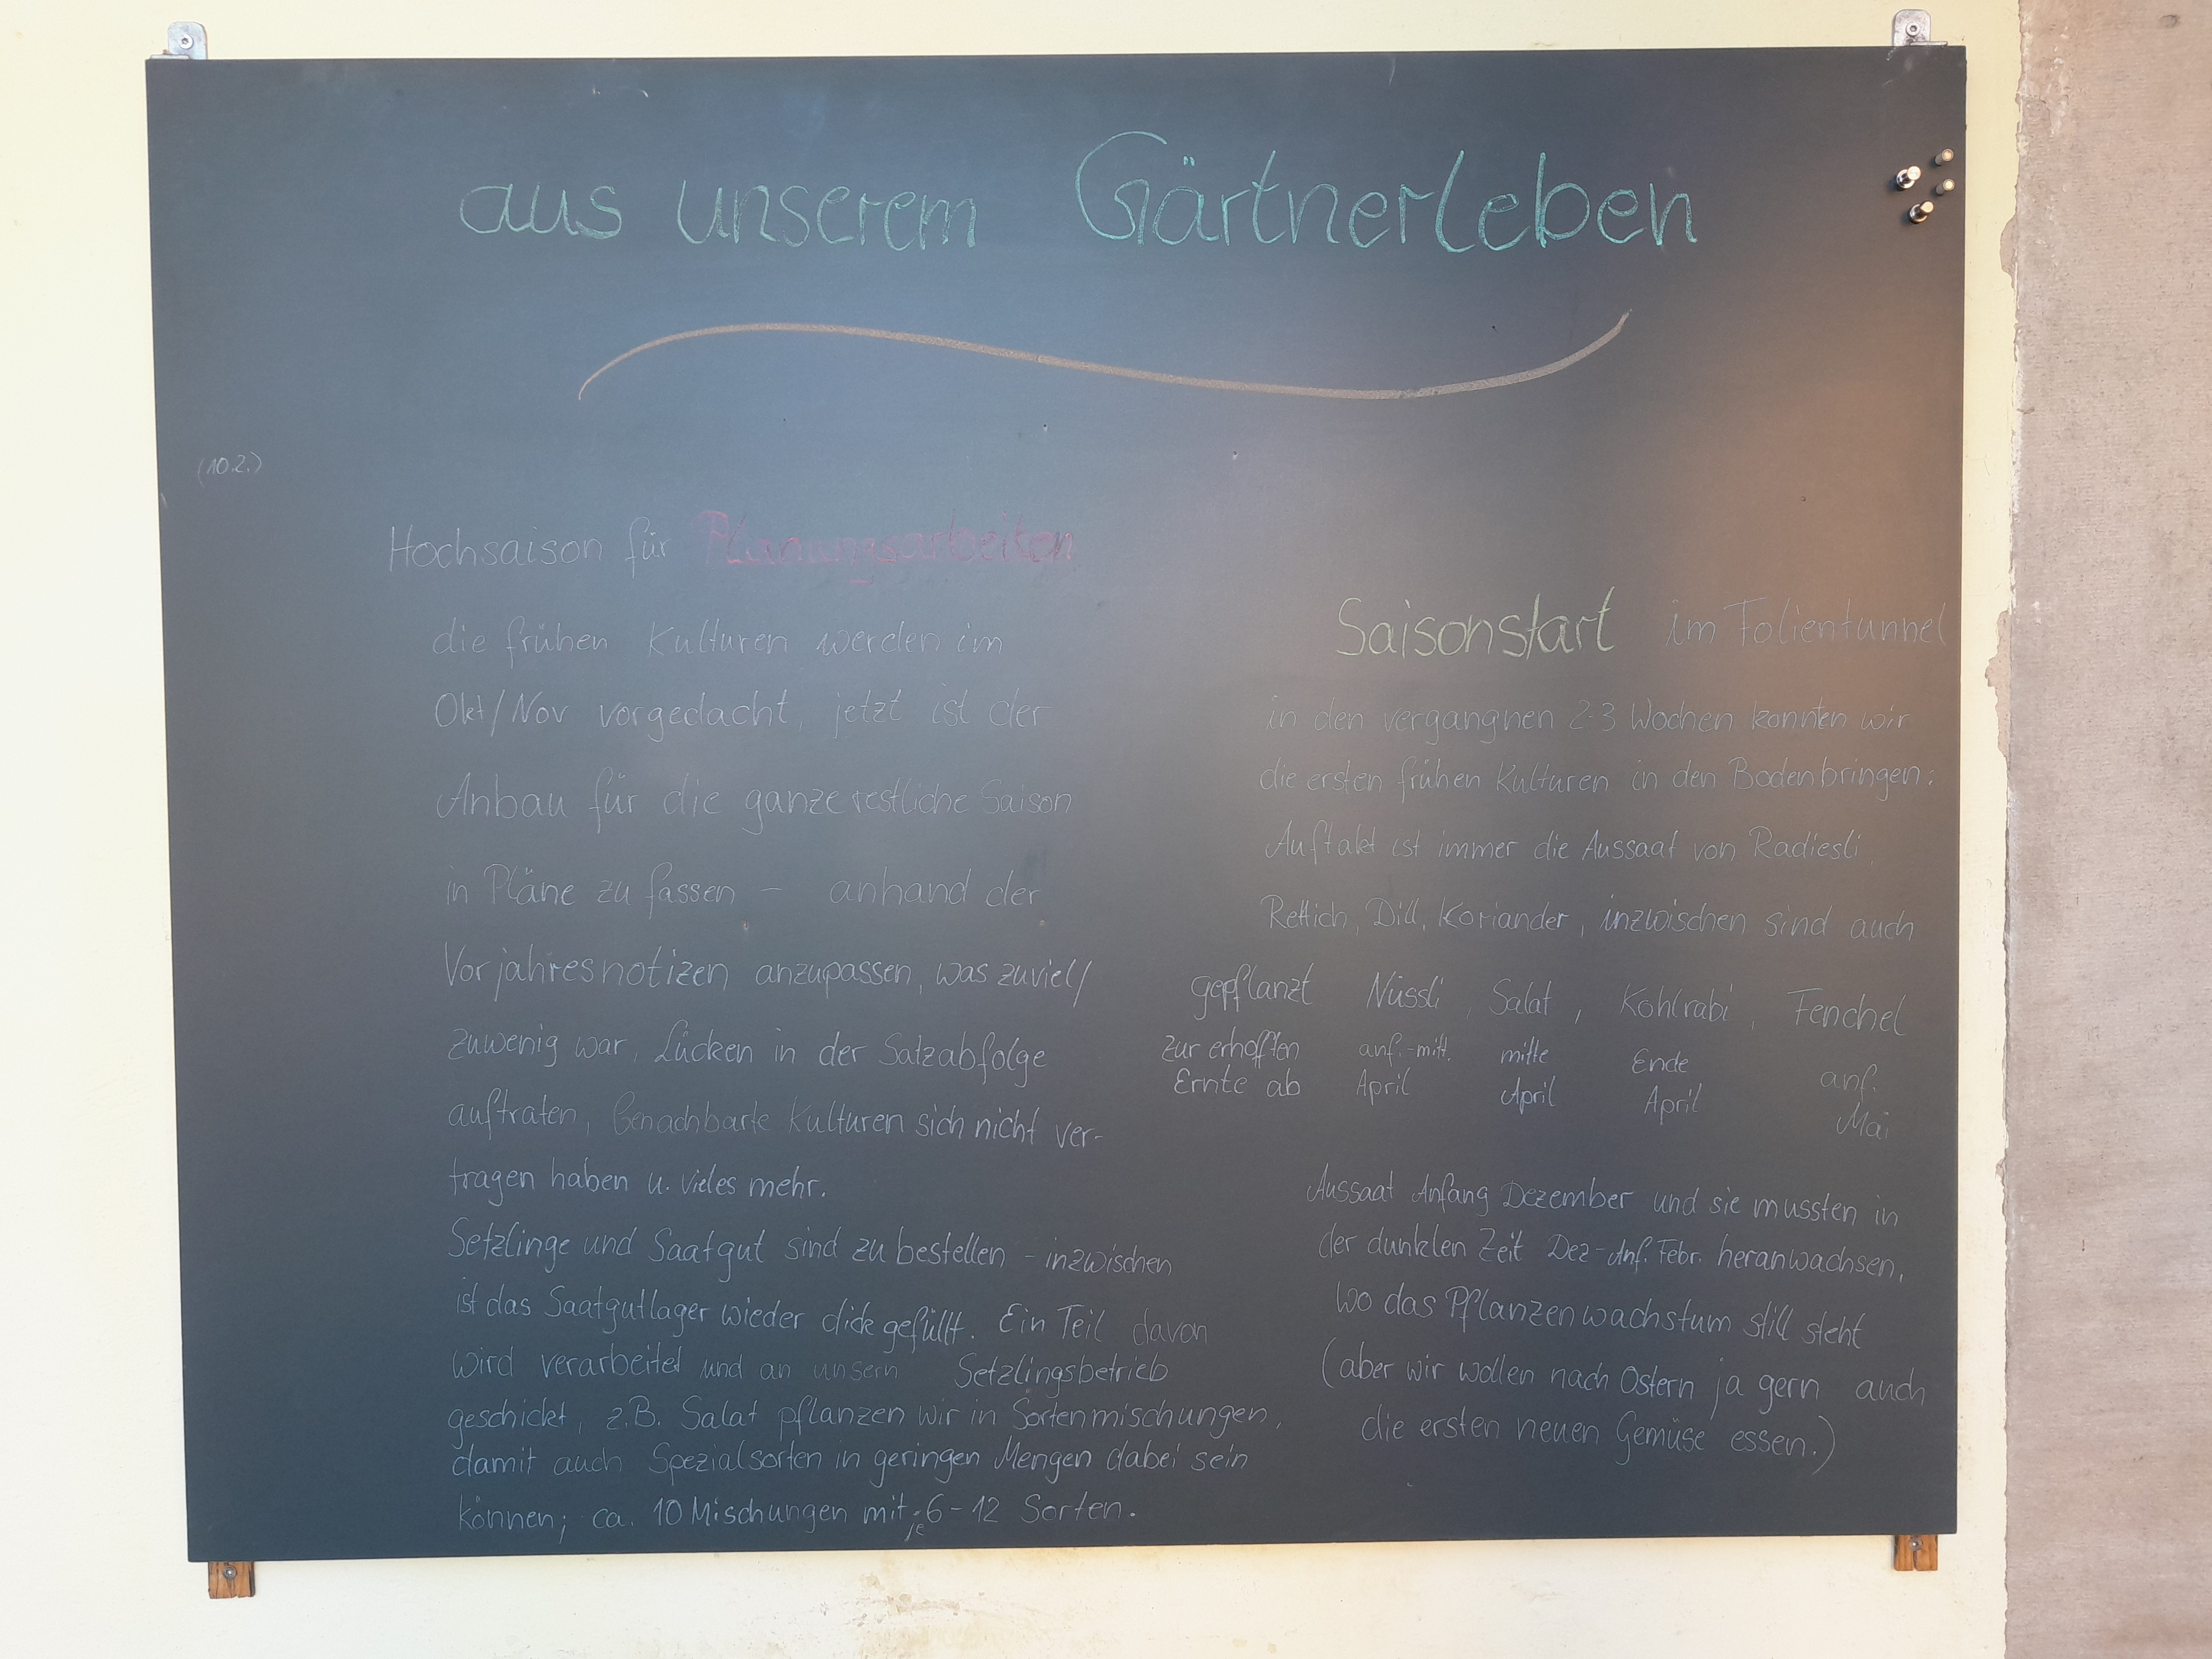 aus unserem Gärtnerleben
(10.2.)
Hochsaison für Planungsarbeiten
die frühen Kulturen werden im
Okt/Nov vorgedacht, jetzt ist der
Anbau für die ganze restliche Saison
in Pläne zu fassen – anhand der
Vorjahresnotizen anzupassen, was zuviel/
zuwenig war, Lücken in der Satzabfolge
auftraten, benachbarte Kulturen sich nicht ver-
tragen haben u. vieles mehr.
Setzlinge und Saatgut sind zu bestellen – inzwischen
ist das Saatgutlager wieder dick gefüllt. Ein Teil davon
wird verarbeitet und an unsern Setzlingsbetrieb
geschickt, z.B. Salat pflanzen wir in Sortenmischungen,
damit auch Spezialsorten in geringen Mengen dabei sein
können; ca. 10 Mischungen mit je 6–12 Sorten.
Saisonstart im Folientunnel
in den vergangnen 2-3 Wochen konnten wir
die ersten frühen Kulturen in den Boden bringen:
Auftakt ist immer die Aussaat von Radiesli,
Rettich, Dill, Koriander, inzwischen sind auch
gepflanzt Nüssli, Salat, Kohlrabi, Fenchel
zur erhofften anf.-mitt. mitte Ende anf.
Ernte ab April April April Mai
Aussaat Anfang Dezember und sie mussten in
der dunklen Zeit Dez-Anf. Febr. heranwachsen,
wo das Pflanzenwachstum still steht
(aber wir wollen nach Ostern ja gern auch
die ersten neuen Gemüse essen.)